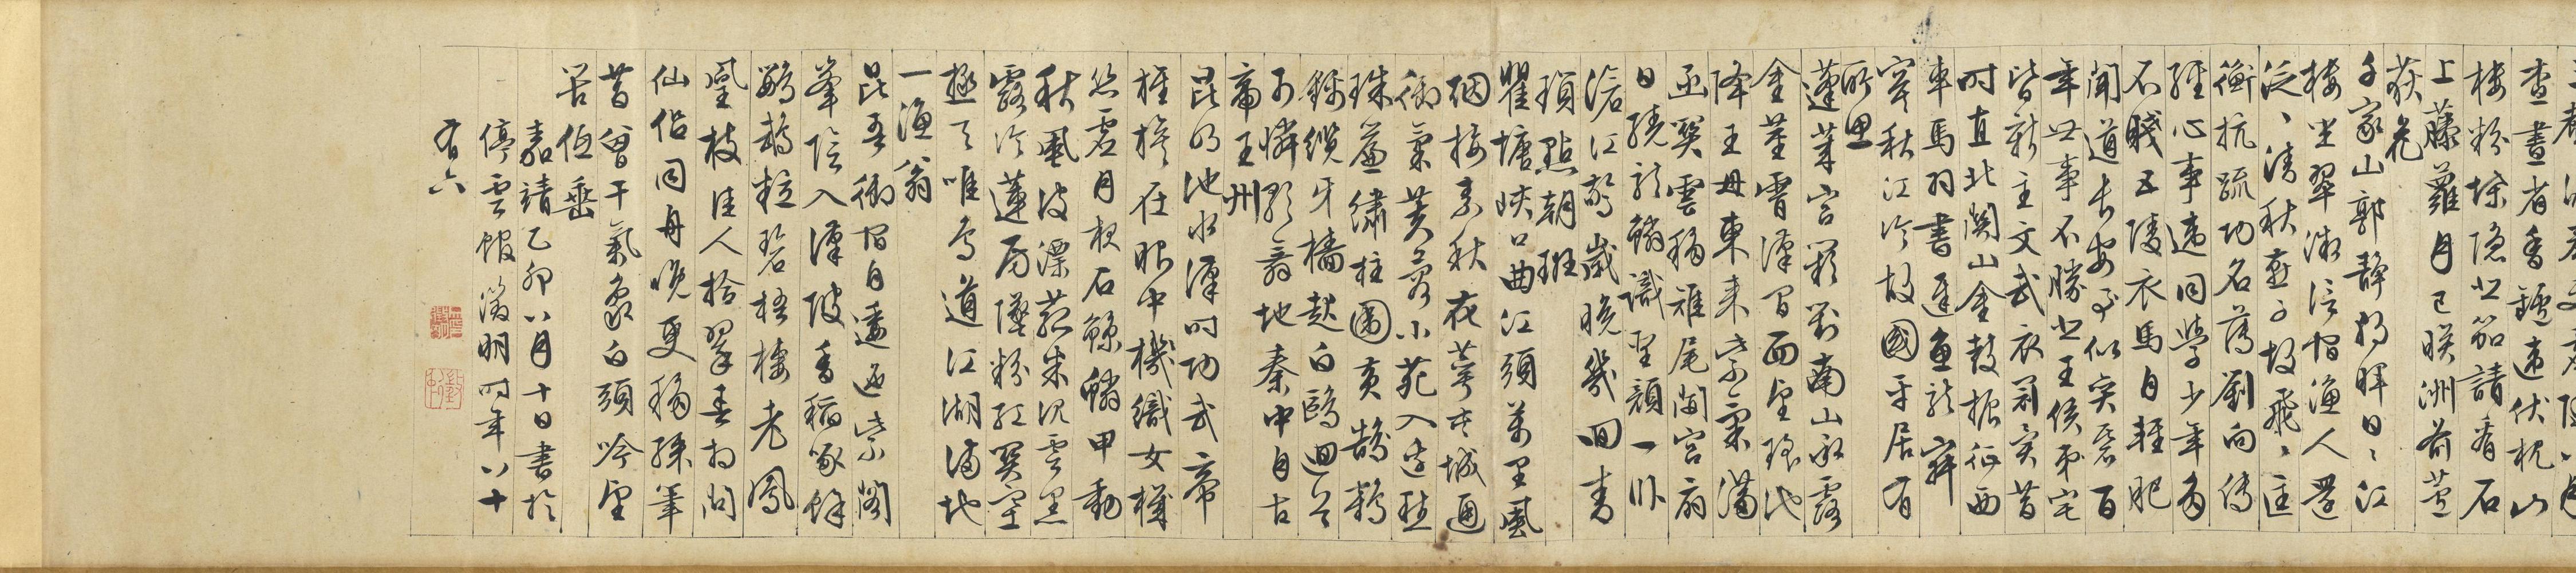 查晝省香鑪違伏枕山
樓粉堞隱悲笳請看石
上藤蘿月已映洲前蘆
荻花
千家山郭靜朝暉日〻江
樓坐翠微信宿漁人還
泛〻清秋燕子故飛〻匡
衡抗疏功名薄劉向傳
經心事違同學少年多
不賤五陵衣馬自輕肥
聞道長安似奕碁百
年世事不勝悲王侯第宅
皆新主文武衣冠異昔
時直北關山金鼓振征西
車馬羽書遲魚龍寂
寞秋江冷故國平居有
所思
蓬萊宮闕對南山承露
金莖霄漢間西望瑤池
降王母東來紫氣滿
函關雲移雉尾開宮扇
日繞龍鱗識聖顏一臥
滄江驚歲晚幾回青
瑣點朝班
瞿塘峽口曲江頭萬里風
烟接素秋花萼夾城通
御氣芙蓉小苑入邊愁
珠簾繡柱圍黃鵠鶴
錦纜牙檣起白鷗迴首
可憐歌舞地秦中自古
帝王州
昆明池水漢時功武帝
旌旗在眼中機織女機
絲虛月夜石鯨鱗甲動
秋風波漂菰米沉雲黑
露冷蓮房墜粉紅關塞
極天唯鳥道江湖滿地
一漁翁
昆吾御宿自逶迤紫閣
峯陰入渼陂香稻啄餘
鸚鵡粒碧梧棲老鳳
凰枝佳人拾翠春相問
仙侶同舟晚更移綵筆
昔曾干氣象白頭吟望
苦低垂
嘉靖乙卯八月十日書於
停雲館徵明時年八十
有六